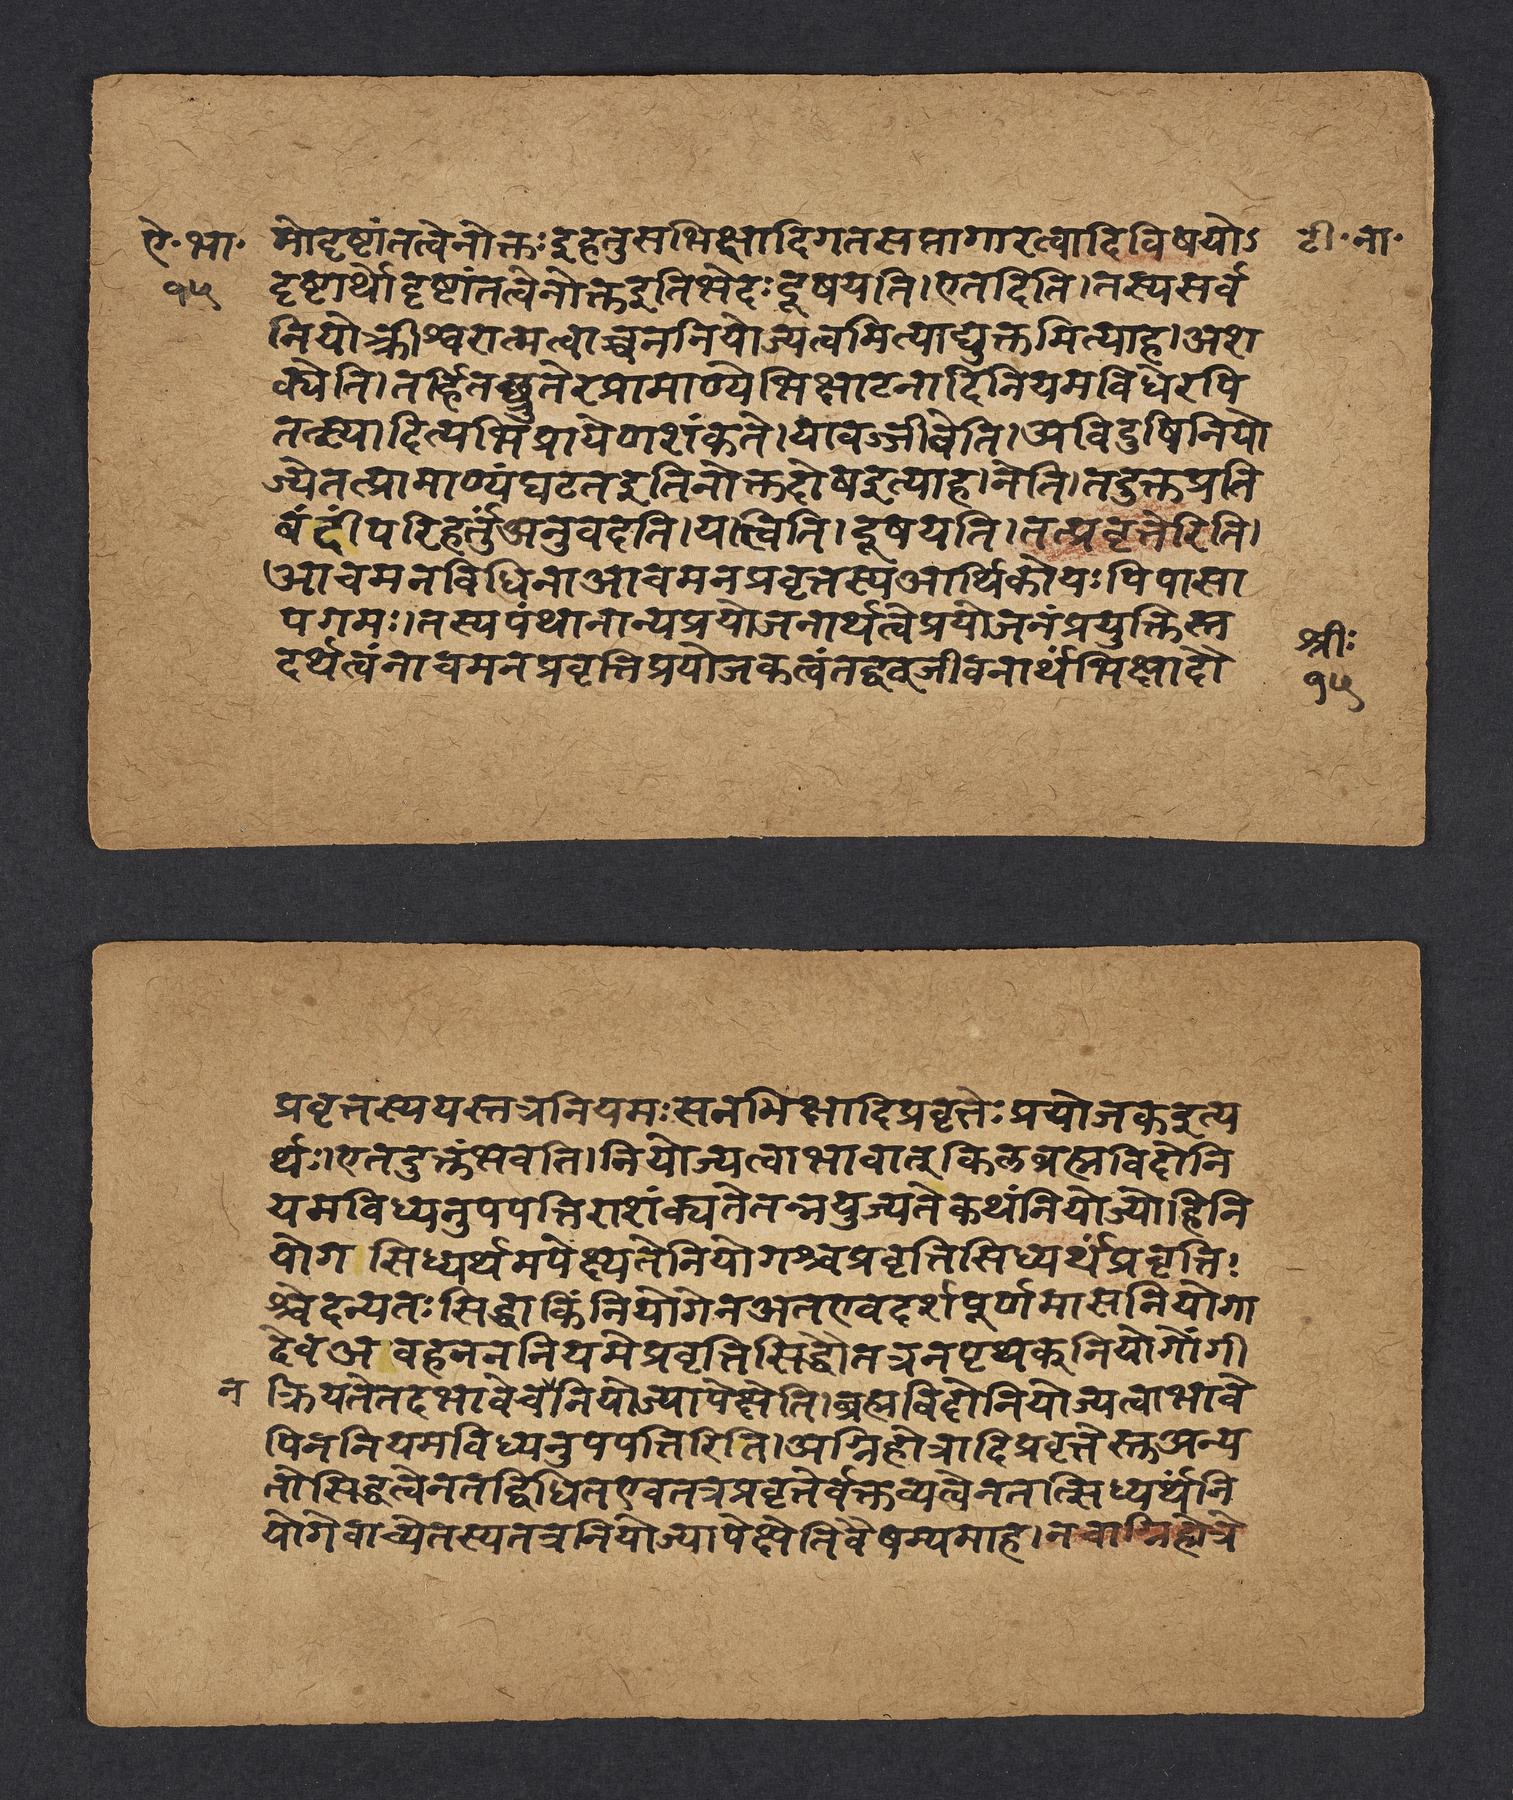 ऐ·भा·
१५
मोदृष्टांतत्वेनोक्तः इहतुसभिक्षादिगतसप्तागारत्वादिविषयोऽ
टी·ना·
दृष्टार्थोदृष्टांतत्वेनोक्तइतिभेदः दूषयति।एतदिति।तस्यसर्व
नियोक्त्रीश्वरात्मत्वाच्चननियोज्यत्वमित्याद्युक्तमित्याह।अश
क्येति।तर्हितच्छ्रुतेरप्रामाण्येभिक्षाटनादिनियमविधेरपि
तत्स्यादित्यभिप्रायेणशंकते।यावज्जीवेति।अविदुषिनियो
ज्येतत्प्रामाण्यंघटतइतिनोक्तदोषइत्याह।नेति।तदुक्तप्रति
बंदींपरिहर्तुंअनुवदति।यत्त्विति।दूषयति।तत्प्रवृत्तेरिति।
आचमनविधिनाआचमनप्रवृत्तस्यआर्थिकोयःपिपासा
पगमः।तस्यपंथानान्यप्रयोजनार्थत्वेप्रयोजनंप्रयुक्तिस्त
दर्थत्वंनाचमनप्रवृत्तिप्रयोजकत्वंतद्वज्जीवनार्थंभिक्षादौ
श्रीः
१५
प्रवृत्तस्ययस्तत्रनियमःसनभिक्षादिप्रवृत्तेःप्रयोजकइत्य
र्थः।एतदुक्तंभवति।नियोज्यत्वाभावात् किलब्रह्मविदोनि
यमविध्यनुपपत्तिराशंक्यतेतन्नयुज्यतेकथंनियोज्योहिनि
योग सिध्यर्थमपेक्ष्यतेनियोगश्चप्रवृत्तिसिध्यर्थंप्रवृत्ति:
श्चेदन्यतःसिद्धाकिंनियोगेनअतएवदर्शपूर्णमासनियोगा
देवअवहननननियमेप्रवृत्तिसिद्धौतत्रनपृथक्नियोगोंगी
न
क्रियतेतदभावेचनियोज्यापेक्षेति।ब्रह्मविदोनियोज्यत्वाभावे
पिननियमविध्यनुपपत्तिरिति।अग्निहोत्रादिप्रवृत्तेस्तअन्य
तोसिद्धत्वेनतद्विधितएवतत्रप्रवृत्तेर्वक्तव्यत्वेनतत्सिध्यर्थंनि
योगेवाच्येतस्यतत्रनियोज्यापेक्षेतिवैषम्यमाह।नचाग्निहोत्रे